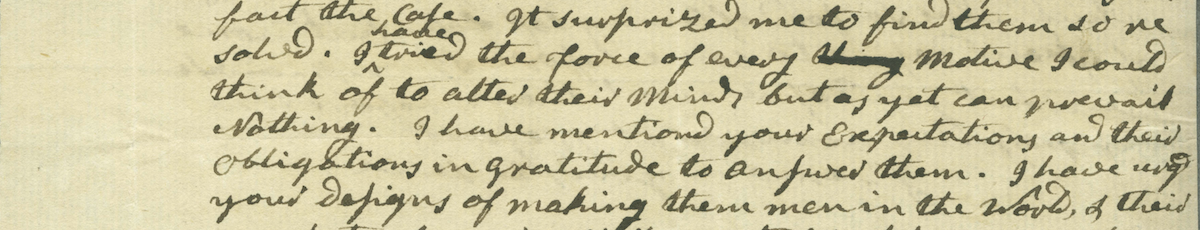 fact the Case. It surprized me to find them so re
solvd. I have tried the force of every thing Motive I could
think of to alter their Minds but as yet can prevail
Nothing. I have mentiond your Expectations and their
obligations in gratitude to answer them. I have urgd
your Designs of making them men in the World, & their